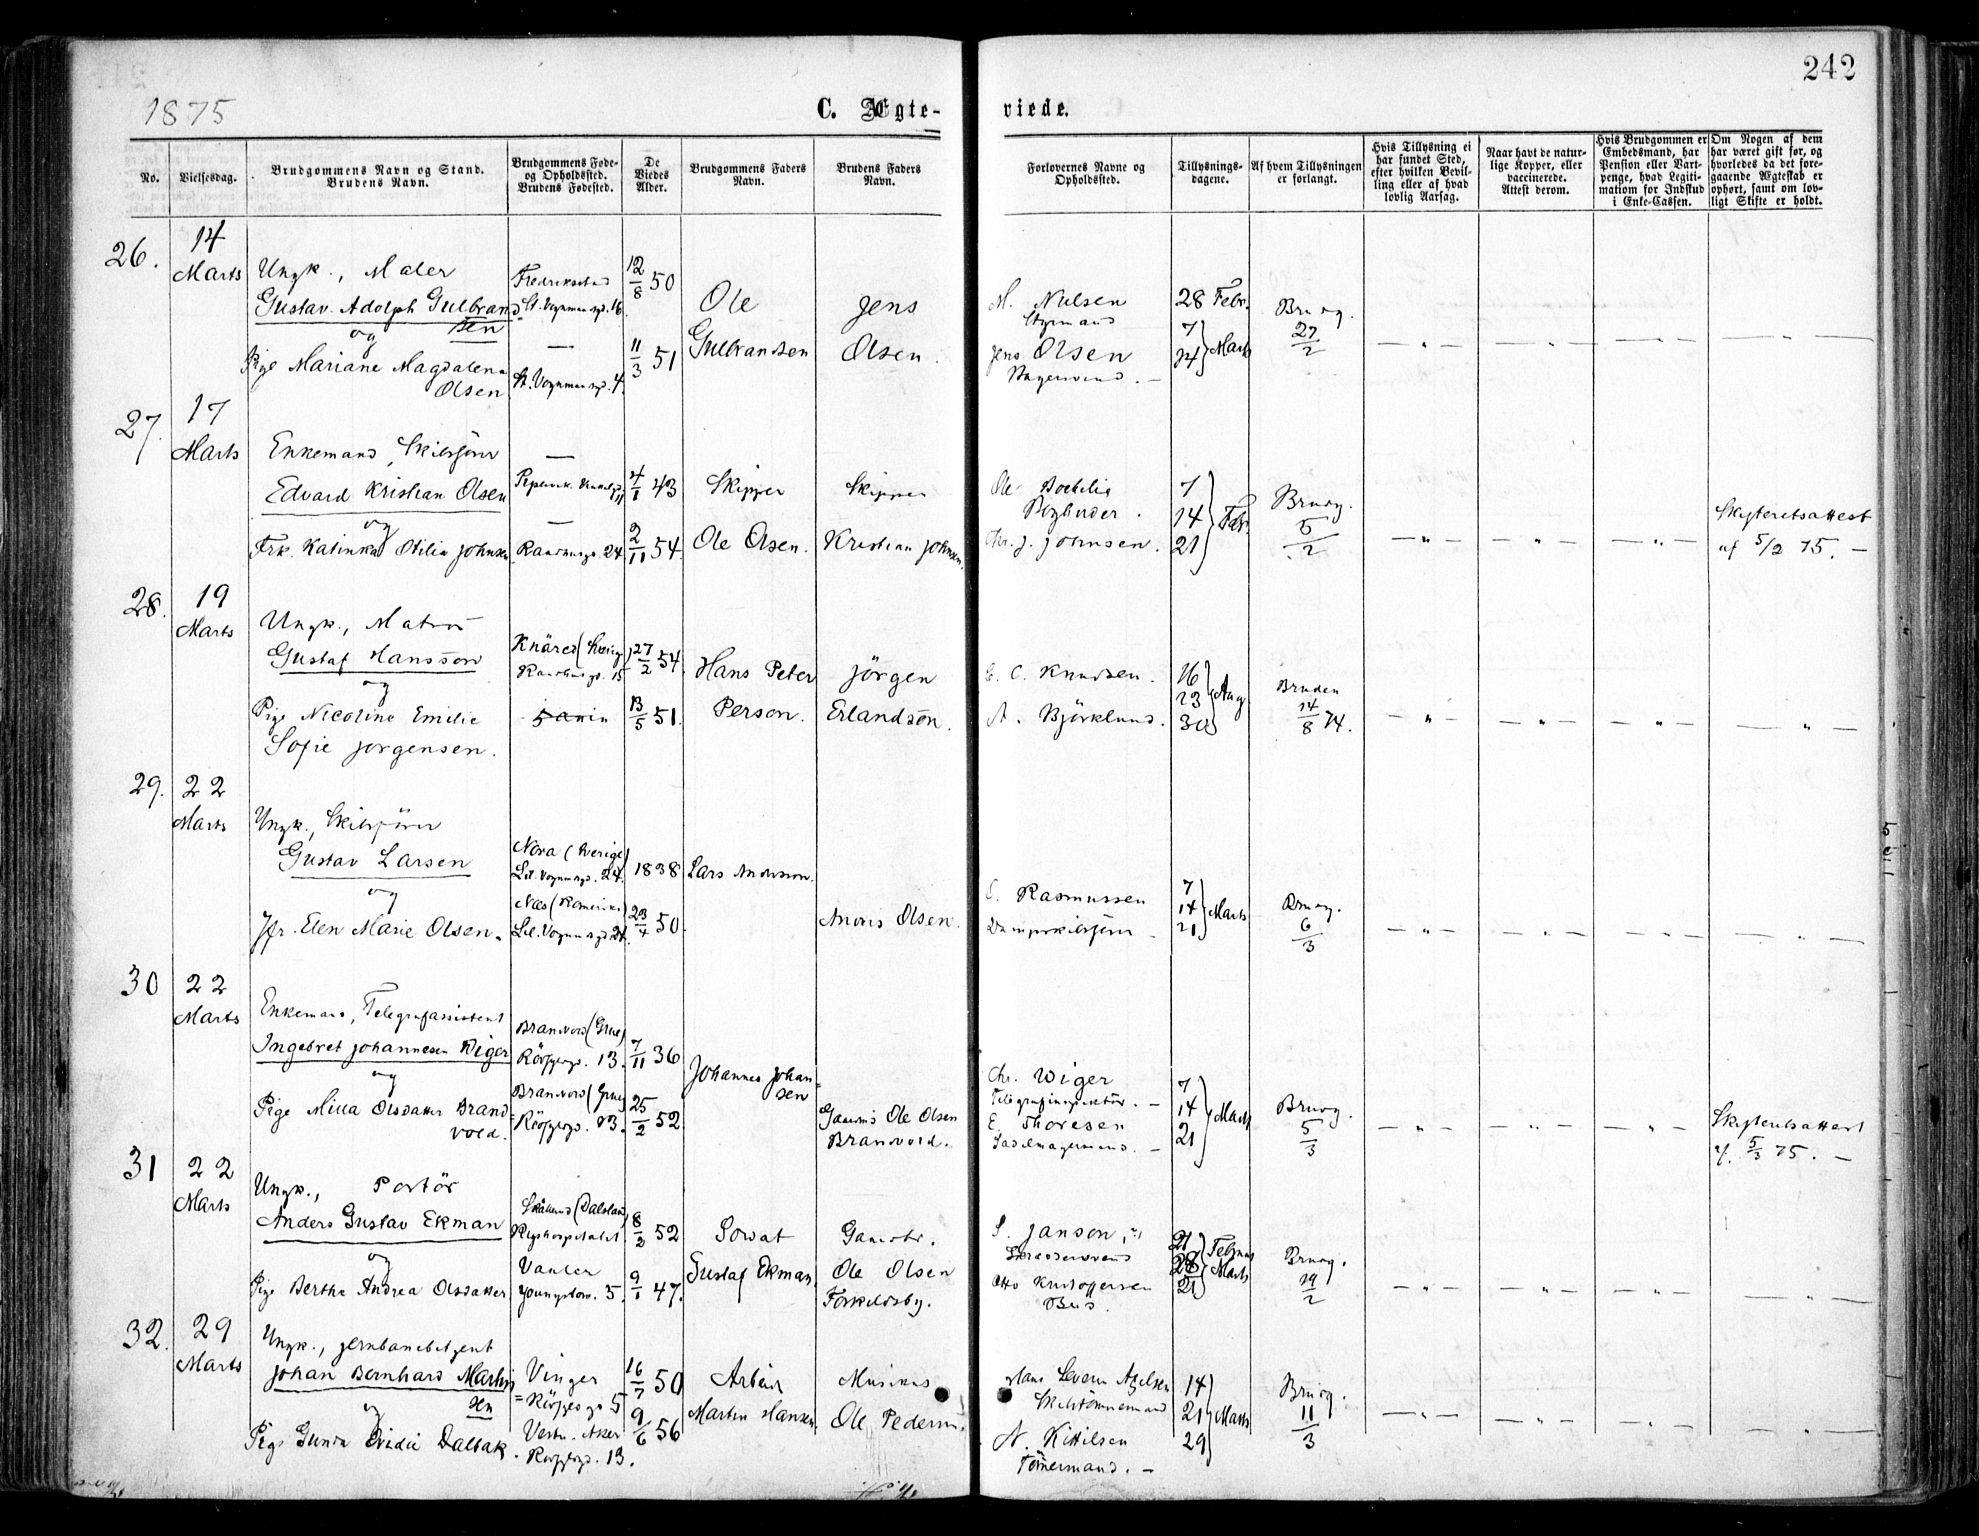 242
1875
C. Ægte-
viede.
No.
Vielsesdag.
Brudgommens Navn og Stand.
Brudens Navn.
Brudgommens Føde-
og Opholdssted.
Brudens Fødested.
De
Viedes
Alder.
Brudgommens Faders
Navn.
Brudens Faders
Navn.
Forlovernes Navne og
Opholdssted.
Tillysnings-
dagene.
Af hvem Tillysningen
er forlangt.
Hvis Tillysning ei
har fundet Sted,
efter hvilken Bevil-
ling eller af hvad
lovlig Aarsag.
Naar havt de natur-
lige Kopper, eller
vaccinerede.
Attest derom.
Hvis Brudgommen er
Embedsmand, har
Pension eller Vart-
penge, hvad Legiti-
mation for Indskud
i Enke-Cassen.
Om Nogen af dem
har været gift før, og
hvorledes da det fore-
gaaende Ægteskab er
ophørt, samt om lov-
ligt Skifte er holdt.
26.
14
Marts
Ungk., Maler
Gustav Adolph Gulbrand=
sen
og
Pige Mariane Magdalena
Olsen
Fredrikstad
St. Vognmansgd. 16
—
St. Vognmansgd. 4.
12/8 50
11/3 51
Ole
Gulbrandsen
Jens
Olsen.
M. Nielsen
Styrmand
Jens Olsen
28 Febr.
7
14 } Marts
Brudg.
27/2
27.
17
Marts
Enkemand, Skibsfører
Edvard Kristian Olsen
og
Frk. Katinka Otilia Johnsen
—
—
Raadhusgd. 24.
4/1 43
2/11 54.
Skipper
Ole Olsen.
Skipper
Kristian Johnsen.
Ole
Bogbinder.
Chr. J. Johnsen.
7
14
21 } Febr.
Brudg.
5/2
Skifteretsattest
af 5/2 75. —
28.
19
Marts
Ungk., Matros
Gustaf Hansson
og
Pige Nicoline Emilie
Sofie Jorgensen.
Knäred (Sverig)
Raadhusgd. 15
27/2 54.
13/5 51.
Hans Peter
Person.
Jörgen
Erlandson.
C. Knudsen.
A. Björklund.
16
23
30 } Aug
Bruden
14/8 74.
29.
22
Marts
Ungk., Skibsfører
Gustav Larsen
og
Jfr. Elen Marie Olsen.
Nora (Sverige)
Lil. Vognmsgd. 24.
Næs (Romerike)
Lil. Vognmsgd. 24.
1838
23/4 50.
Lars Andersson.
Anders Olsen.
C. Rasmussen
Dampskibsfører —
7
14
21 } Marts
Brudg.
6/3
30
22
Marts
Enkemand, Telegrafassistent
Ingebret Johannesen Wiger
og
Pige Milla Olsdatter Brand=
vold.
Brandvord (Grue)
Rörsgd. 13.
Brandvord (Grue)
Rörsgd. 13.
7/11 36
25/2 52
Johannes Johan=
sen
Gaardbr Ole Olsen
Brandvold.
Chr. Wiger
Telegrafinspektör. —
E. Thoresen
Sadelmagersvend. —
7
14
21 } Marts
Brudg.
5/3
Skifteretsattest
af 5/3 75. —
31
22
Marts
Ungk., Portör
Anders Gustav Ekman
og
Pige Berthe Andrea Olsdatter
(Dalsland)
Rigshospitalet.
Youngstorv. 5.
8/2 52
9/1 47.
Soldat
Gustaf Ekman.
Gaardbr.
Ole Olsen
S. Janson,
Otto Kristoffersen
Bud.
21 } Februar
28 } Marts
21
Brudg.
19/2
32.
29
Marts
Ungk., Jernbanebetjent
Johan Bernhard Martin=
sen
og
Pige Gunda Ovidie Dalbak.
Vinger
Rörsgd 5
Vestr. Aker
Rörsgd. 13.
16/7 50
9/6 56
Arbeider
Martin Hansen.
Musikus
Ole Pedersen.
Hans Severin Axelsen
Skibstömmermand
N. Kittilsen
Tömmermand. —
14
21
29 } Marts
Brudg.
11/3